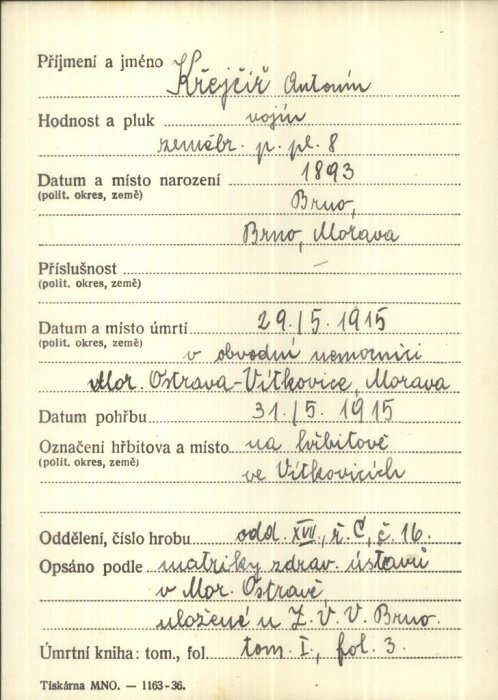 Příjmení a jméno Křejčíř Antonín
Hodnost a pluk vojín
zeměbr. p. pl. 8
Datum a místo narození 1893
(polit. okres, země) Brno,
Brno, Morava
Příslušnost –
(polit. okres, země)
Datum a místo úmrtí 29./5. 1915
(polit. okres, země) v obvodní nemocnici
Mor. Ostrava-Vítkovice, Morava
Datum pohřbu 31./5. 1915
Označení hřbitova a místo na hřbitově
(polit. okres, země) ve Vítkovicích
Oddělení, číslo hrobu odd. XVII., ř. C, č. 16.
Opsáno podle matriky zdrav. ústavů
v Mor. Ostravě,
uložené u Z. V. V. Brno.
Úmrtní kniha: tom., fol. tom. I., fol. 3.
Tiskárna MNO. — 1163-36.